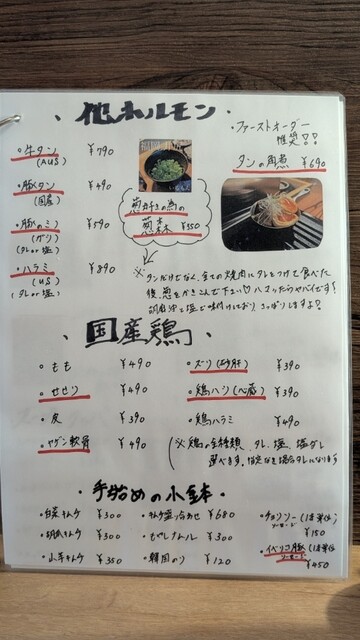 ・他ホルモン・
・牛タン ¥790
(AUS)
・豚タン ¥490
(国産)
・豚ハラミ ¥590
(ガリ)
(タレor塩)
・ハラミ ¥890
(US)
(タレor塩)
葱好きの為の
葱森 ¥350
・ファーストオーダー
推奨!!
タンの角煮 ¥690
※タンだけでなく、全ての焼肉にタレをつけて食べた
後、葱をかきこんで下さい♡ハマったらヤバイです!
胡麻油と塩で味付けしており、さっぱりしますよ♪
・国産鶏・
・もも ¥490
・せせり ¥490
・皮 ¥390
・ヤゲン軟骨 ¥490
・ズリ(砂肝) ¥390
・鶏ハツ(心臓) ¥390
・鶏ハラミ ¥490
(※鶏の全種類、タレ、塩、塩ダレ
選べます。指定なき場合タレになります
・手始めの小鉢・
・白菜キムチ ¥300
・胡瓜キムチ ¥300
・山芋キムチ ¥350
・キムチ盛り合わせ ¥680
・もやしナムル ¥300
・韓国のり ¥120
・チョリソー(1本単位)
ソーセージ ¥150
・イベリコ豚(1本単位)
ソーセージ ¥450